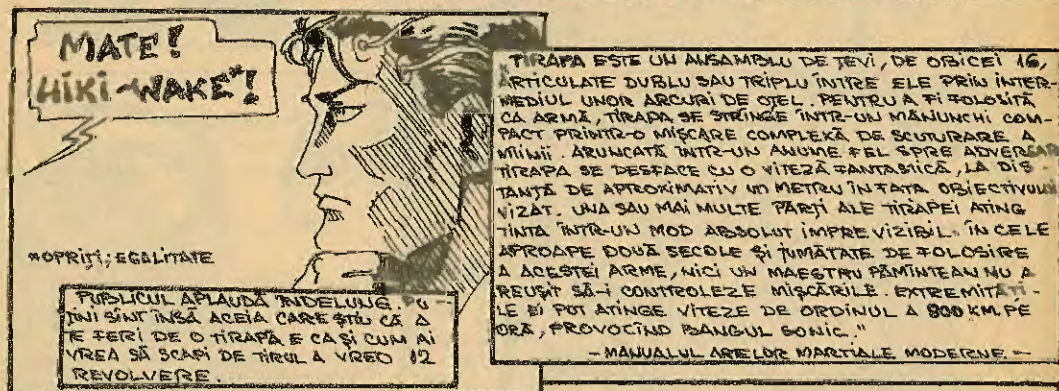 MATE!
HIKI-WAKE*!
*OPRIȚI; EGALITATE
PUBLICUL APLAUDĂ ÎNDELUNG. PU-
ȚINI SÎNT ÎNSĂ ACEIA CARE ȘTIU CĂ A
TE FERI DE O TIRAPĂ E CA ȘI CUM AI
VREA SĂ SCAPI DE TIRUL A VREO 12
REVOLVERE.
"TIRAPA ESTE UN ANSAMBLU DE ȚEVI, DE OBICEI 16,
ARTICULATE DUBLU SAU TRIPLU ÎNTRE ELE PRIN INTER-
MEDIUL UNOR ARCURI DE OȚEL. PENTRU A FI FOLOSITĂ
CA ARMĂ, TIRAPA SE STRÎNGE ÎNTR-UN MĂNUNCHI COM-
PACT PRINTR-O MIȘCARE COMPLEXĂ DE SCUTURARE A
MÎINII. ARUNCATĂ ÎNTR-UN ANUME FEL SPRE ADVERSAR
TIRAPA SE DESFACE CU O VITEZĂ FANTASTICĂ, LA DIS
TANȚĂ DE APROXIMATIV UN METRU ÎN FAȚA OBIECTIVULUI
VIZAT. UNA SAU MAI MULTE PĂRȚI ALE TIRAPEI ATING
ȚINTA ÎNTR-UN MOD ABSOLUT IMPREVIZIBIL. ÎN CELE
APROAPE DOUĂ SECOLE ȘI JUMĂTATE DE FOLOSIRE
A ACESTEI ARME, NICI UN MAESTRU PĂMÎNTEAN NU A
REUȘIT SĂ-I CONTROLEZE MIȘCĂRILE. EXTREMITĂȚI-
LE EI POT ATINGE VITEZE DE ORDINUL A 800 KM. PE
ORĂ, PROVOCÎND BANGUL SONIC."
- MANUALUL ARTELOR MARȚIALE MODERNE -